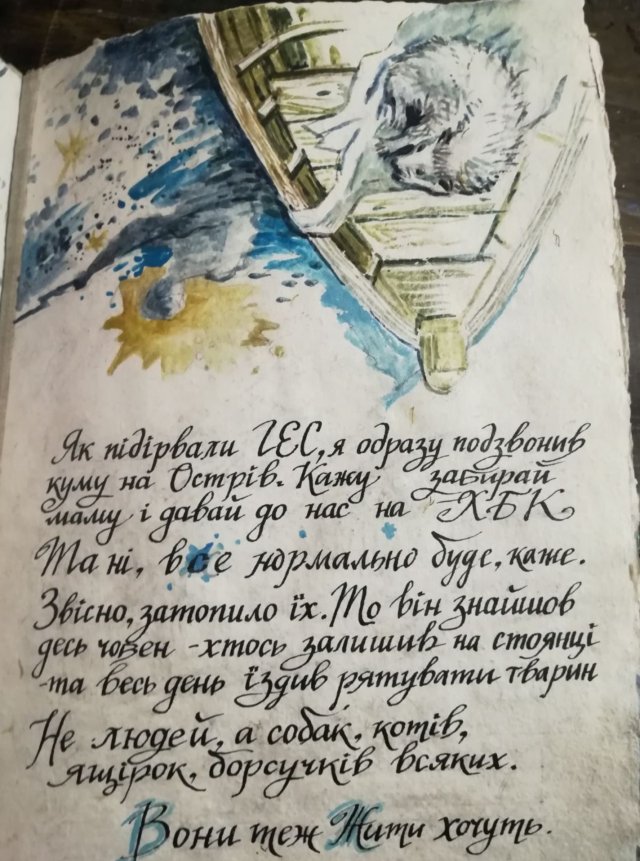 Як підірвали ГЕС, я одразу подзвонив
куму на Острів. Кажу забирай
маму і давай до нас на ХБК
Та ні, все нормально буде, каже.
Звісно, затопило їх. То він знайшов
десь човен - хтось залишив на стоянці
- та весь день їздив рятувати тварин
Не людей, а собак, котів,
ящірок, борсучків всяких.
Вони теж Жити хочуть.